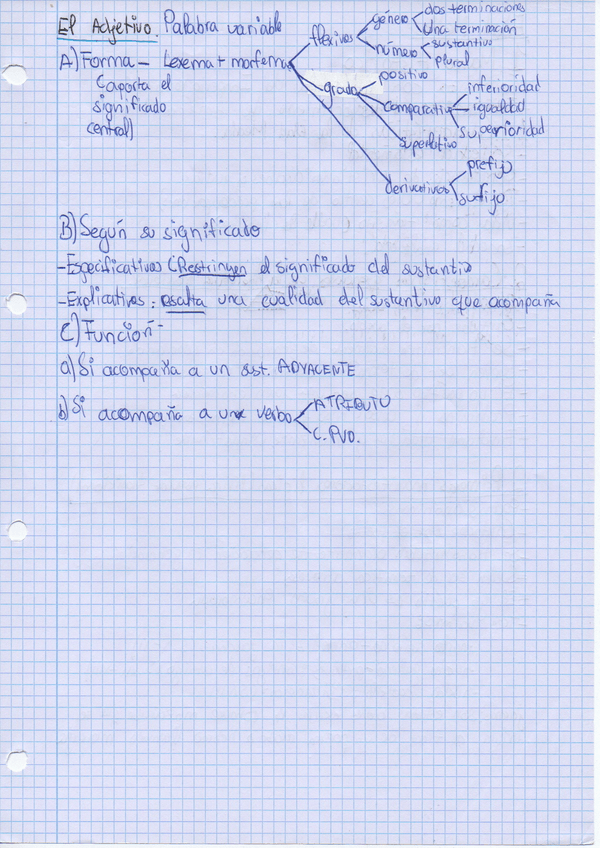 El Adjetivo. Palabra variable
A) Forma - Lexema + morfema
(aporta el
significado
central)
flexivos
género
dos terminaciones
Una terminación
número
sustantivo
plural
grado
positivo
comparativo
inferioridad
igualdad
superioridad
superlativo
derivativos
prefijo
sufijo
B) Según su significado
- Especificativos (Restringen el significado del sustantivo
- Explicativos: resalta una cualidad del sustantivo que acompaña
C) Función-
a) Si acompaña a un sust. ADYACENTE
b) Si acompaña a un verbo
ATRIBUTO
C. PVO.